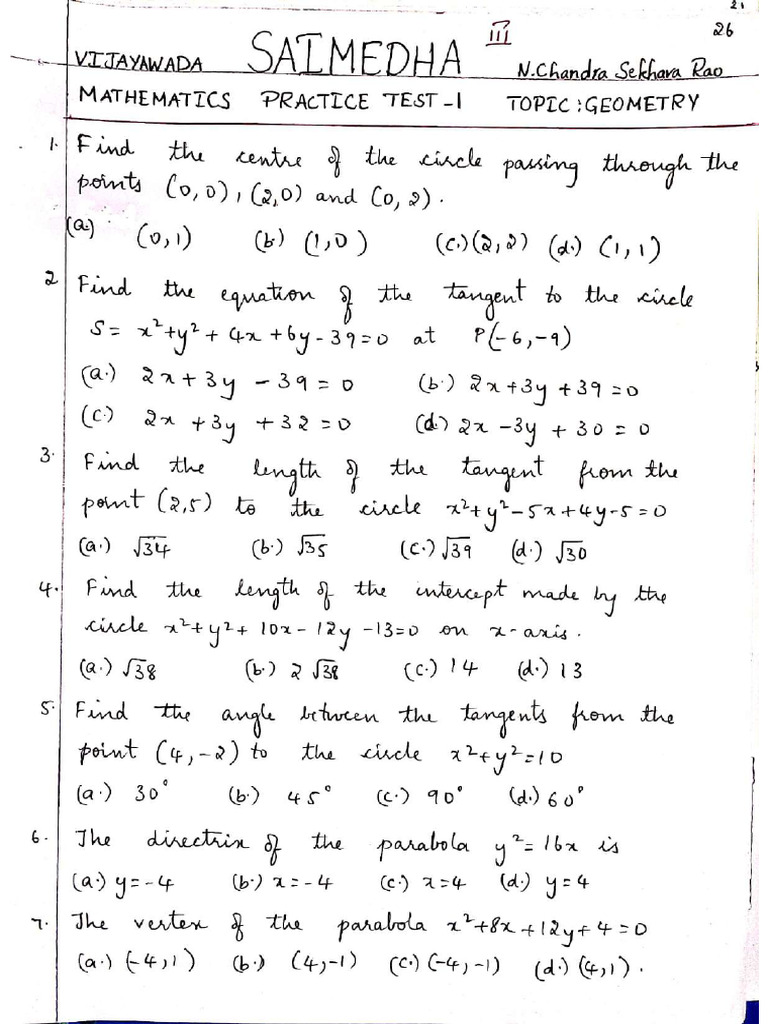 21
26
III
VIJAYAWADA SAIMEDHA N.Chandra Sekhara Rao
MATHEMATICS PRACTICE TEST-1 TOPIC: GEOMETRY
1. Find the centre of the circle passing through the
points (0,0), (2,0) and (0,2).
(a.) (0,1) (b.) (1,0) (c.) (2,2) (d.) (1,1)
2 Find the equation of the tangent to the circle
S = x²+y²+4x+6y-39=0 at P(-6,-9)
(a.) 2x+3y-39=0 (b.) 2x+3y+39=0
(c.) 2x+3y+32=0 (d.) 2x-3y+30=0
3. Find the length of the tangent from the
point (2,5) to the circle x²+y²-5x+4y-5=0
(a.) √34 (b.) √35 (c.) √39 (d.) √30
4. Find the length of the intercept made by the
circle x²+y²+10x-12y-13=0 on x-axis.
(a.) √38 (b.) 2√38 (c.) 14 (d.) 13
5. Find the angle between the tangents from the
point (4,-2) to the circle x²+y²=10
(a.) 30° (b.) 45° (c.) 90° (d.) 60°
6. The directrix of the parabola y²=16x is
(a.) y=-4 (b.) x=-4 (c.) x=4 (d.) y=4
7. The vertex of the parabola x²+8x+12y+4=0
(a.) (-4,1) (b.) (4,-1) (c.) (-4,-1) (d.) (4,1).